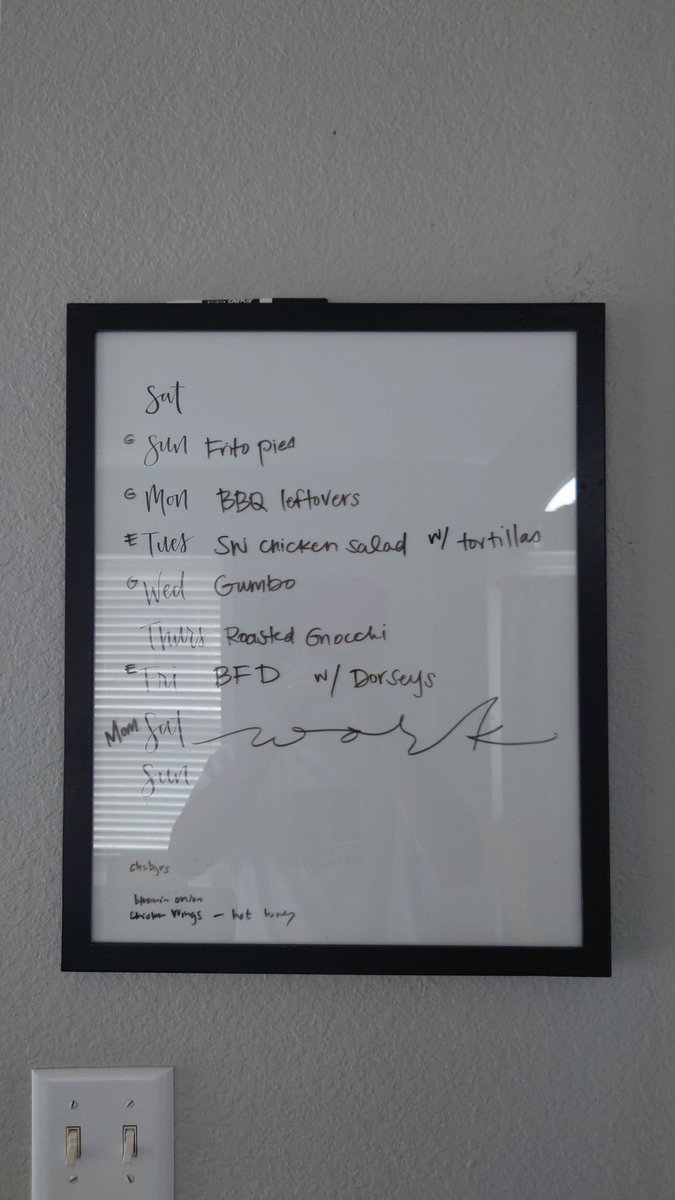 Sat
G Sun Frito pies
G Mon BBQ leftovers
E Tues SW chicken salad w/ tortillas
G Wed Gumbo
Thurs Roasted Gnocchi
E Fri BFD w/ Dorseys
Mom Sat work
Sun
chsbgrs
bloomin onion
chicken wings - hot honey